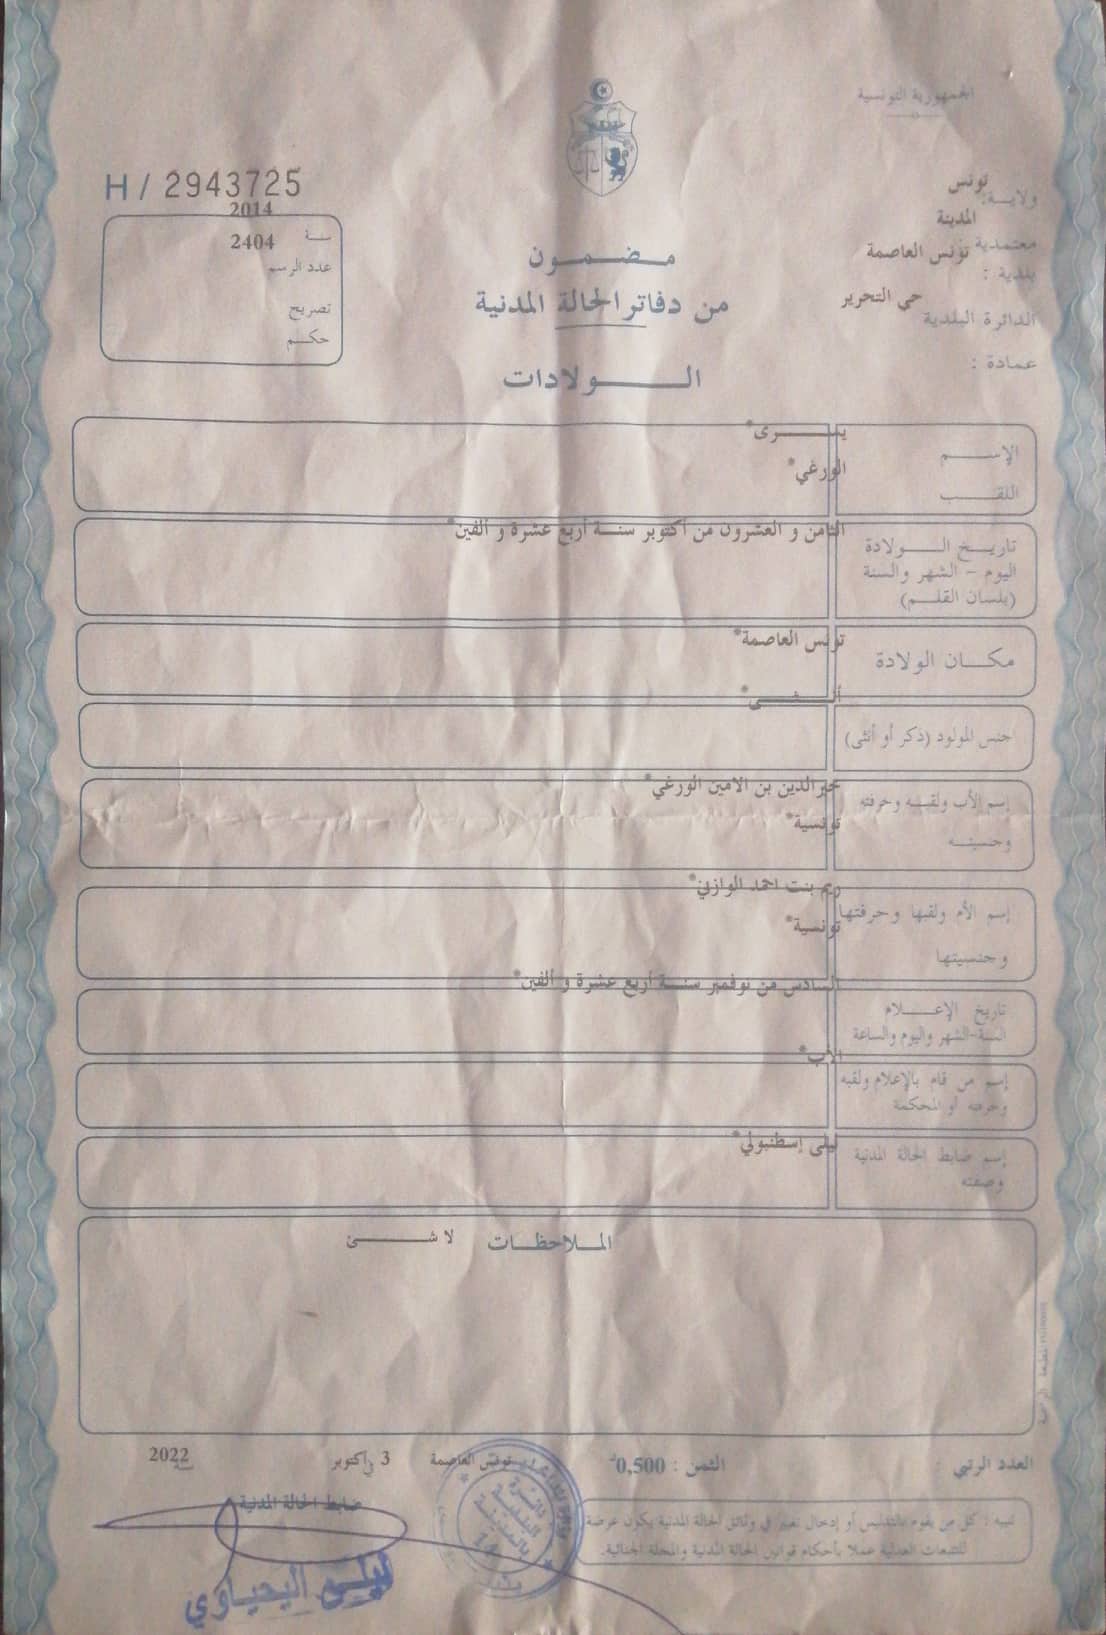 الجمهورية التونسية
H / 2943725
ولاية : تونس
معتمدية المدينة
بلدية : تونس العاصمة
الدائرة البلدية حي التحرير
عمادة :
2014
سنة
2404
عدد الرسم
تصريح
حكم
مضمون
من دفاتر الحالة المدنية
الولادات
الإسم
اللقب
الورغي*
تاريخ الولادة
اليوم - الشهر والسنة
(بلسان القلم)
الثامن و العشرون من أكتوبر سنة أربع عشرة و ألفين*
مكان الولادة
تونس العاصمة*
جنس المولود (ذكر أو أنثى)
أنثى*
إسم الأب ولقبه وحرفته
وجنسيته
خيرالدين بن الامين الورغي*
تونسية*
إسم الأم ولقبها وحرفتها
وجنسيتها
ريم بنت احمد الوازني*
تونسية*
تاريخ الإعلام
السنة-الشهر واليوم والساعة
السادس من نوفمبر سنة أربع عشرة و ألفين*
إسم من قام بالإعلام ولقبه
وحرفته أو المحكمة
الأب*
إسم ضابط الحالة المدنية
وصفته
ليلى إسطنبولي*
الملاحظات لا شئ
العدد الرتبي :
الثمن : 0,500د
تونس العاصمة في 3 أكتوبر سنة 2022
ضابط الحالة المدنية
تنبيه : كل من يقوم بالتدليس أو إدخال تغيير في وثائق الحالة المدنية يكون عرضة
للتتبعات العدلية عملا بأحكام قوانين الحالة المدنية والمجلة الجنائية.
دائرة
البلدية
بالمدينة
ليلى اليحياوي